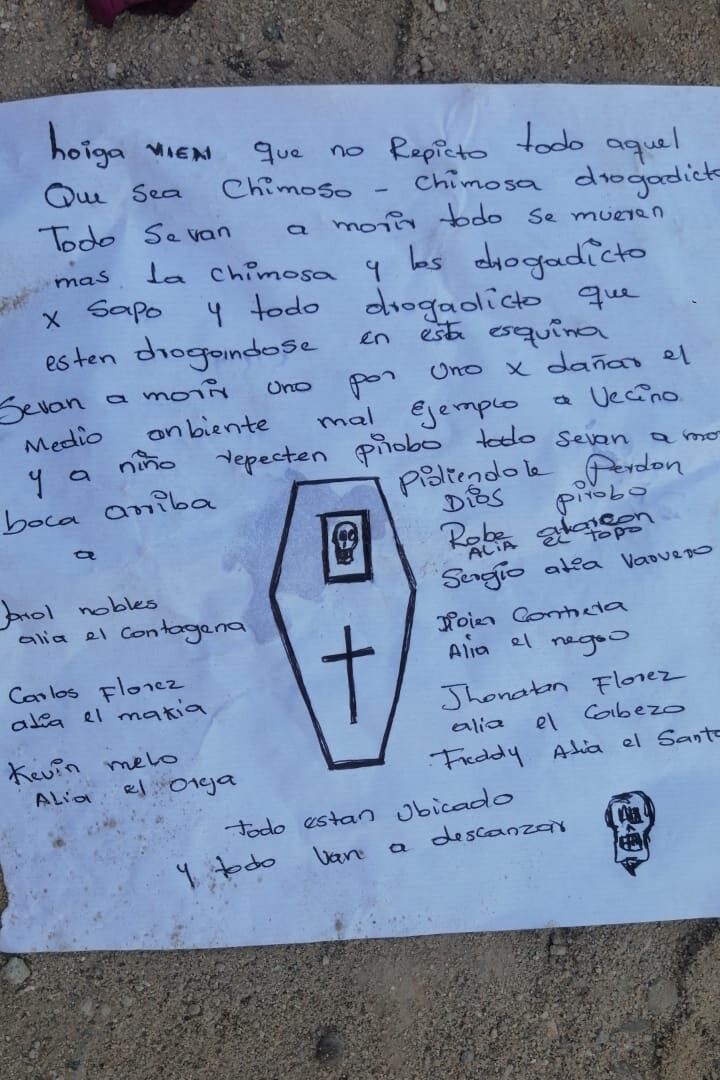 hoiga VIEN que no Repicto todo aquel
Que sea Chimoso - Chimosa drogadicto
Todo Sevan a morir todo se mueren
mas la chimosa y los drogadicto
x Sapo y todo drogadicto que
esten drogandose en esta esquina
Sevan a morir uno por uno x dañar el
Medio anbiente mal ejemplo a Vecino
y a niño repecten pirobo todo sevan a mo
boca arriba pidiendole Perdon
a DIOS pirobo
nobles
alia el Contagena
Carlos Florez
alia el matia
Kevin melo
ALIA el Oreja
Robe alarcon
ALIA el TOPO
Sergio alia Vaquero
Alia el negro
Jhonatan Florez
alia el Cabezo
Freddy Alia el Santo
todo estan Ubicado
y todo Van a descanzar